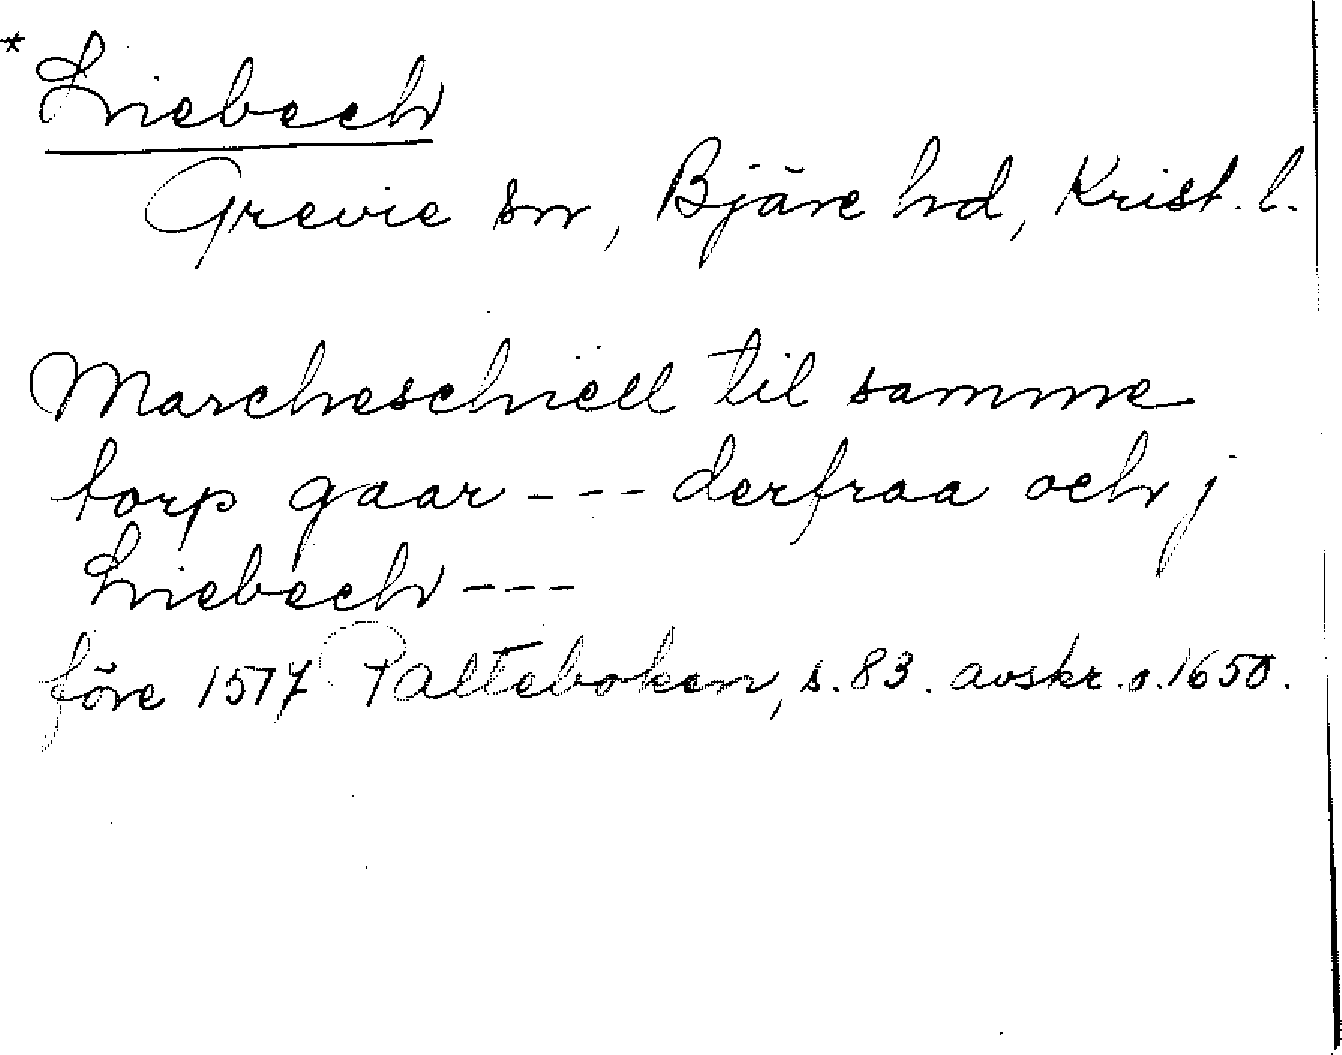 * Liebech
Grevie sn, Bjäre hd, Krist. l.
Marcheschiell til samme
torp gaar - - - derfraa och j
Liebech - - -
före 1577 Palteboken, s. 83. avskr. o. 1650.